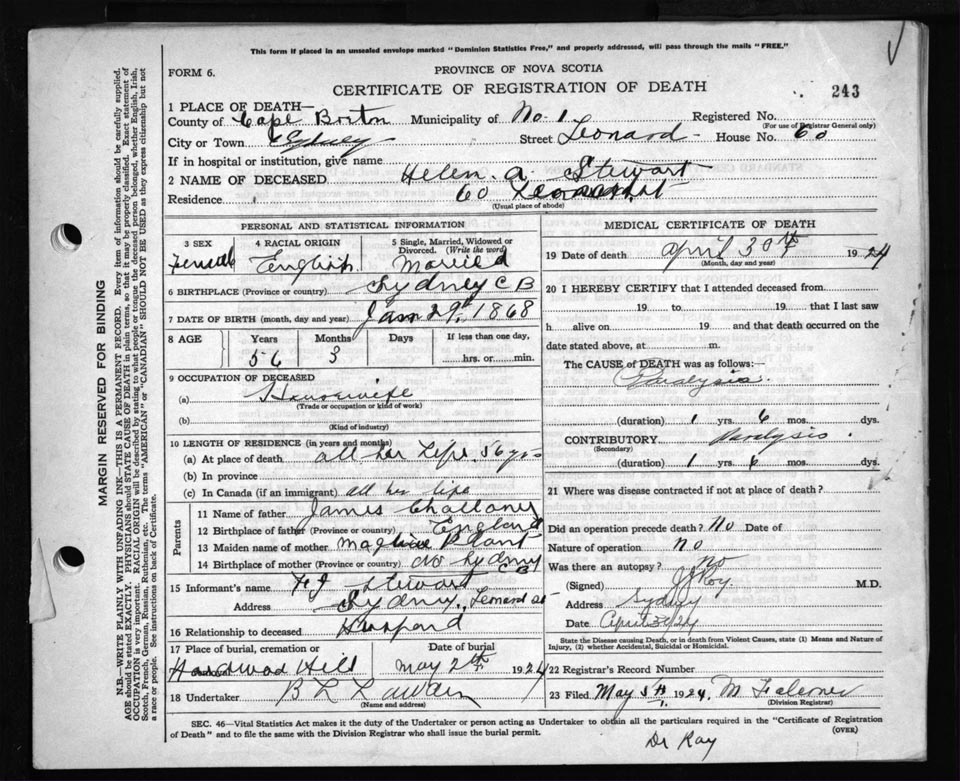 This form if placed in an unsealed envelope marked "Dominion Statistics Free," and properly addressed, will pass through the mails "FREE."
FORM 6.
PROVINCE OF NOVA SCOTIA
CERTIFICATE OF REGISTRATION OF DEATH
243
1 PLACE OF DEATH—
County of Cape Breton Municipality of No. 1 Registered No.
(For use of Registrar General only)
City or Town Sydney Street Leonard House No. 60
If in hospital or institution, give name
2 NAME OF DECEASED Helen. A. Stewart
Residence 60 Leonard st
(Usual place of abode)
PERSONAL AND STATISTICAL INFORMATION
3 SEX 4 RACIAL ORIGIN 5 Single, Married, Widowed or Divorced. (Write the word)
Female English Married
6 BIRTHPLACE (Province or country) Sydney C B
7 DATE OF BIRTH (month, day and year) Jan 29th 1868
8 AGE Years Months Days If less than one day,
56 3 hrs. or min.
9 OCCUPATION OF DECEASED
(a) Housewife
(Trade or occupation or kind of work)
(b)
(Kind of industry)
10 LENGTH OF RESIDENCE (in years and months)
(a) At place of death all her Life 56 yrs
(b) In province
(c) In Canada (if an immigrant) all her life
Parents
11 Name of father James
12 Birthplace of father (Province or country) England
13 Maiden name of mother
14 Birthplace of mother (Province or country) No Sydney C B
15 Informant's name Stewart
Address Sydney, Leonard st
16 Relationship to deceased Husband
17 Place of burial, cremation or Date of burial
Hardwood Hill May 2nd 1924
18 Undertaker B L
(Name and address)
MEDICAL CERTIFICATE OF DEATH
19 Date of death April 30th 1924
(Month, day and year)
20 I HEREBY CERTIFY that I attended deceased from
19 to 19 that I last saw
h alive on 19 and that death occurred on the
date stated above, at m.
The CAUSE of DEATH was as follows:
Paralysis.
(duration) 1 yrs. 6 mos. dys.
CONTRIBUTORY Paralysis.
(Secondary)
(duration) 1 yrs. 6 mos. dys.
21 Where was disease contracted if not at place of death?
Did an operation precede death? No Date of
Nature of operation no
Was there an autopsy? no
(Signed) Roy. M.D.
Address Sydney
Date April 30/24
State the Disease causing Death, or in death from Violent Causes, state (1) Means and Nature of
Injury, (2) whether Accidental, Suicidal or Homicidal.
22 Registrar's Record Number
23 Filed May 5th 1924, M Falconer
(Division Registrar)
SEC. 46—Vital Statistics Act makes it the duty of the Undertaker or person acting as Undertaker to obtain all the particulars required in the "Certificate of Registration
of Death" and to file the same with the Division Registrar who shall issue the burial permit.
(OVER)
Dr Roy
MARGIN RESERVED FOR BINDING
N.B.—WRITE PLAINLY WITH UNFADING INK—THIS IS A PERMANENT RECORD. Every item of information should be carefully supplied.
AGE should be stated EXACTLY. PHYSICIANS should STATE CAUSE OF DEATH in plain terms, so that it may be properly classified. Exact statement of
OCCUPATION is very important. RACIAL ORIGIN will be described by stating to what people or tongue the deceased person belonged, whether English, Irish,
Scotch, French, German, Russian, Ruthenian, etc. The terms "AMERICAN" or "CANADIAN" SHOULD NOT BE USED as they express citizenship but not
a race or people. See instructions on back of Certificate.